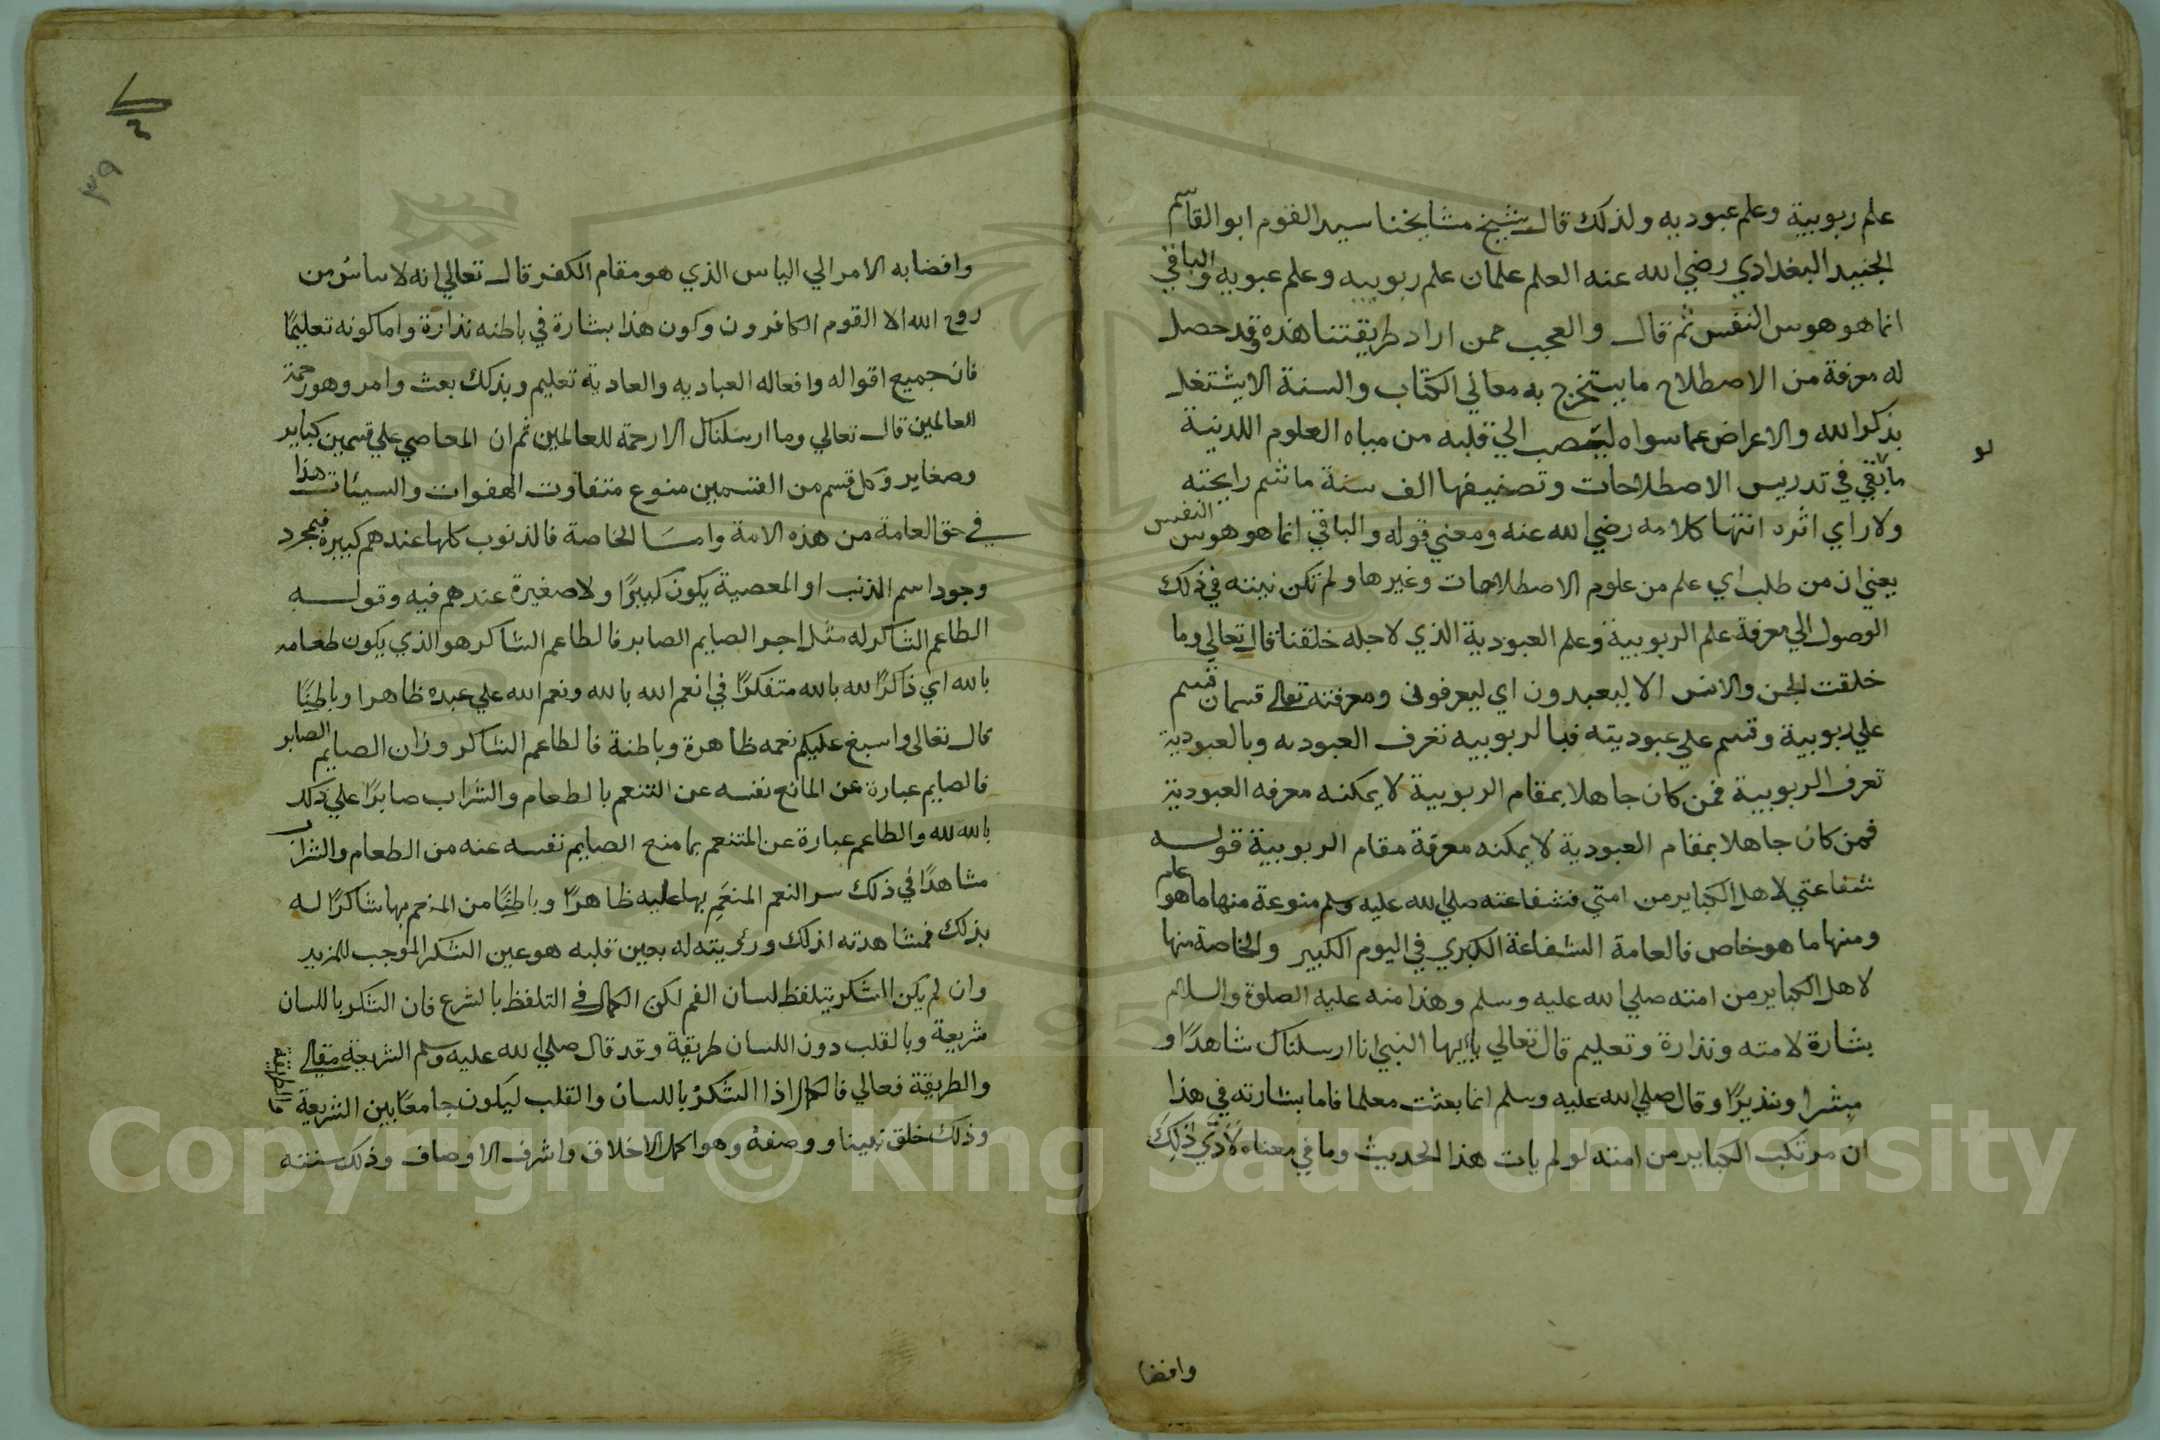 علم ربوبية وعلم عبوديه ولذلك قال شيخ مشايخنا سيد القوم ابو القاسم
الجنيد البغدادي رضي الله عنه العلم علمان علم ربوبيه وعلم عبوديه والباقي
انما هو هوس النفس ثم قال والعجب ممن اراد طريقتنا هذه وقد حصل
له معرفة من الاصطلاح ما يستخرج به معاني الكتاب والسنة الا يشتغل
بذكر الله والاعراض عما سواه ليصب الي قلبه من مياه العلوم اللدنية
لو
ما بقي في تدريس الاصطلاحات وتصنيفها الف سنة ما شم رايحته
ولا راي اثره انتها كلامه رضي الله عنه ومعني قوله والباقي انما هو هوس النفس
يعني ان من طلب اي علم من علوم الاصطلاحات وغيرها ولم تكن نيته في ذلك
الوصول الي معرفة علم الربوبية وعلم العبودية الذي لاجله خلقنا قال تعالي وما
خلقت الجن والانس الا ليعبدون اي ليعرفوني ومعرفته تعالى قسمان قسم
علي ربوبية وقسم علي عبوديته فبالربوبيه تعرف العبوديه وبالعبودية
تعرف الربوبية فمن كان جاهلا بمقام الربوبية لا يمكنه معرفه العبودية
فمن كان جاهلا بمقام العبودية لا يمكنه معرفة مقام الربوبية قوله
شفاعتي لاهل الكباير من امتي فشفاعته صلي الله عليه وسلم منوعة منها ما هو عام
ومنها ما هو خاص فالعامة الشفاعة الكبري في اليوم الكبير والخاصة منها
لاهل الكباير من امته صلي الله عليه وسلم وهذا منه عليه الصلوة والسلام
بشارة لامته ونذارة وتعليم قال تعالي يا ايها النبي انا ارسلناك شاهدًا و
مبشرا ونذيرًا وقال صلي الله عليه وسلم انما بعثت معلما فاما بشارته في هذا
ان مرتكب الكباير من امته لو لم يات هذا الحديث وما في معناه لأدّي ذلك
وافضا
٣٩
وافضا به الامر الي الياس الذي هو مقام الكفر قال تعالي انه لا ياسُ من
روح الله الا القوم الكافرون وكون هذا بشارة في باطنه نذارة واما كونه تعليمًا
فان جميع اقواله وافعاله العباديه والعادية تعليم وبذلك بعث وامر وهو رحمة
العالمين قال تعالي وما ارسلناك الا رحمة للعالمين ثم ان المعاصي علي قسمين كباير
وصغاير وكل قسم من القسمين منوع متفاوت الهفوات والسيئات هذا
في حق العامة من هذه الامة وامسَا الخاصة فالذنوب كلها عندهم كبيرة فبمجرد
وجود اسم الذنب او المعصية يكون كبيرًا ولا صغيرة عندهم فيه وقوله
الطاعم الشاكر له مثل اجر الصايم الصابر فالطاعم الشاكر هو الذي يكون طعامه
بالله اي ذاكرًا لله بالله متفكرًا في انعم الله بالله ونعم الله علي عبده ظاهرا وباطنًا
قال تعالى واسبغ عليكم نعمه ظاهرة وباطنة فالطاعم الشاكر وزان الصايم الصابر
فالصايم عبارة عن المانع نفسه عن التنعم بالطعام والشراب صابرًا علي ذلك
بالله لله والطاعم عبارة عن المتنعم بما منع الصايم نفسه عنه من الطعام والشراب
مشاهدًا في ذلك سر النعم المنعَم بها عليه ظاهرًا وباطنًا من المنعم بها شاكرًا له
بذلك فمشاهدته اذلك ورءيته له بعين قلبه هو عين الشكر الموجب للمزيد
وان لم يكن الشكر يتلفظ لسان الفم لكن الكمال في التلفظ بالشرع فان الشكر باللسان
شريعة وبالقلب دون اللسان طريقة وقد قال صلي الله عليه وسلم الشريعة مقالي
والطريقة فعالي فالكمال اذا الشكرُ باللسان والقلب ليكون جامعًا بين الشريعة والطريقة
وذلك خلق نبينا ووصفهُ وهو اكمل الاخلاق واشرف الاوصاف وذلك سنته
Copyright © King Saud University
1957